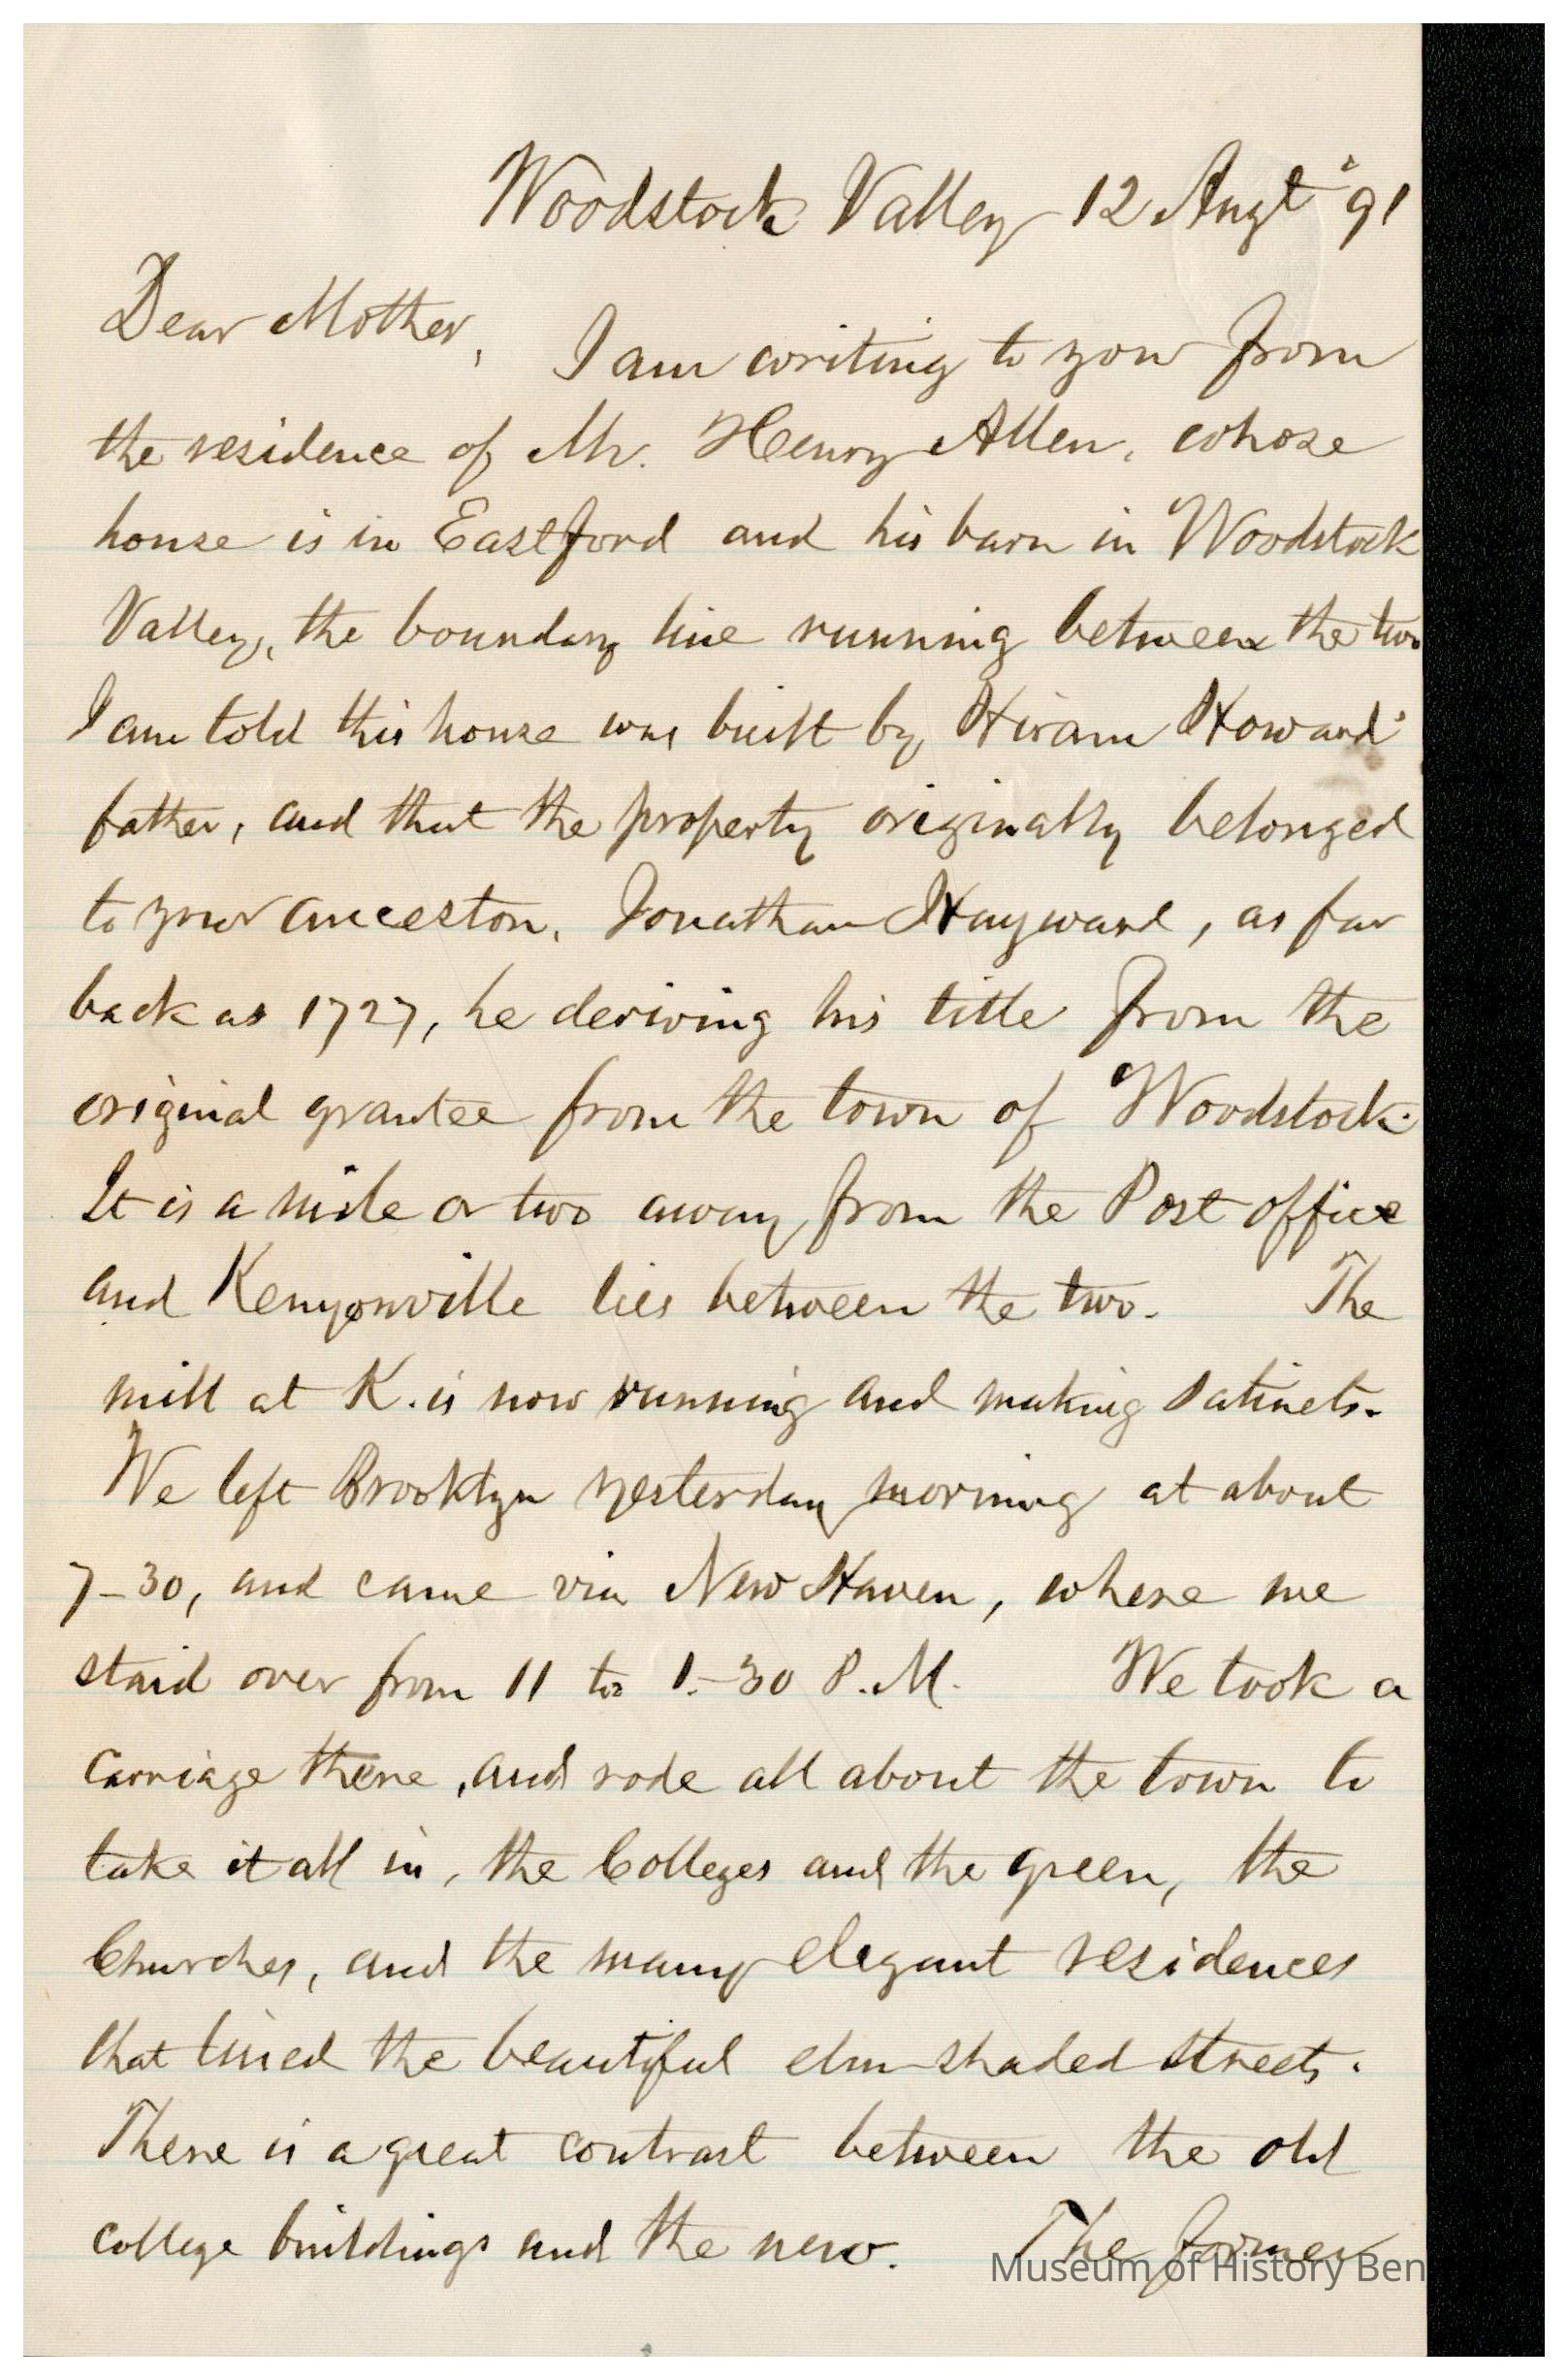 Woodstock Valley 12 Augt '91
Dear Mother,
I am writing to you from
the residence of Mr. Henry Allen, whose
house is in Eastford and his barn in Woodstock
Valley, the boundary line running between the two
I am told this house was built by Hiram Howard'
father, and that the property originally belonged
to your ancestor, Jonathan Hayward, as far
back as 1727, he deriving his title from the
original grantee from the town of Woodstock.
It is a mile or two away from the Post office
and Kenyonville lies between the two. The
mill at K. is now running and making satinets.
We left Brooklyn yesterday morning at about
7-30, and came via New Haven, where we
staid over from 11 to 1.-30 P.M. We took a
carriage there, and rode all about the town to
take it all in, the Colleges and the green, the
Churches, and the many elegant residences
that lined the beautiful elm-shaded streets.
There is a great contrast between the old
college buildings and the new. The former
Museum of History Ben